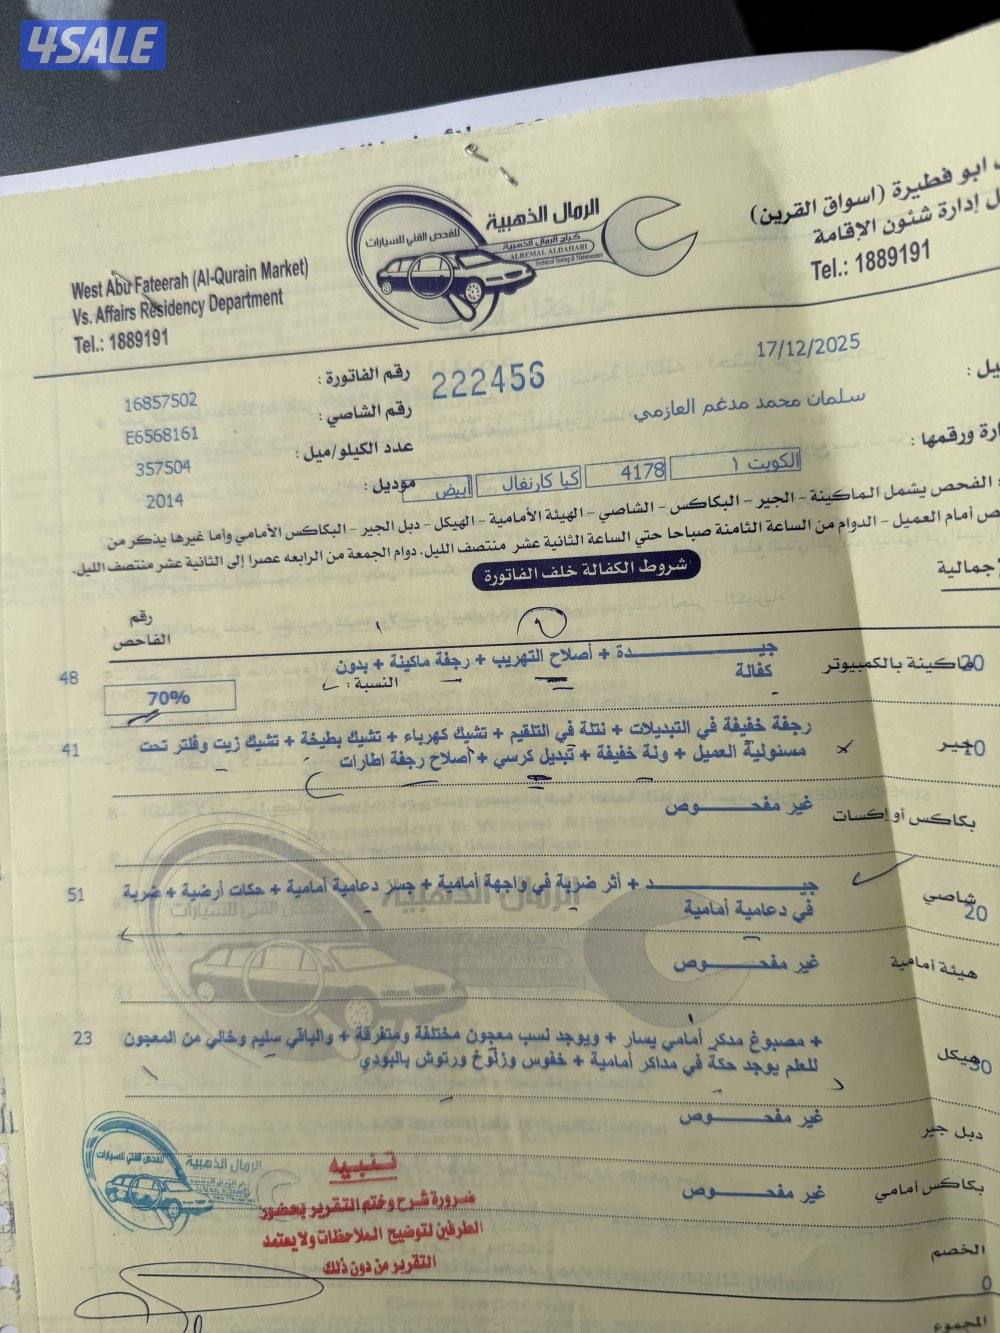 4SALE
ابو فطيرة (اسواق القرين)
إدارة شئون الإقامة
Tel.: 1889191
الرمال الذهبية
كراج الرمال الذهبية
ALREMAL ALDAHABI
Technical Testing & Maintenance
للفحص الفني للسيارات
West Abu Fateerah (Al-Qurain Market)
Vs. Affairs Residency Department
Tel.: 1889191
17/12/2025
222456
رقم الفاتورة : 16857502
سلمان محمد مدغم العازمي
رقم الشاصي : E6568161
ورقمها :
عدد الكيلو/ميل : 357504
الكويت ١ 4178 كيا كارنفال أبيض
موديل : 2014
الفحص يشمل الماكينة - الجير - البكاكس - الشاصي - الهيئة الأمامية - الهيكل - دبل الجير - البكاكس الأمامي وأما غيرها يذكر من
أمام العميل - الدوام من الساعة الثامنة صباحا حتي الساعة الثانية عشر منتصف الليل. دوام الجمعة من الرابعه عصرا إلى الثانية عشر منتصف الليل.
شروط الكفالة خلف الفاتورة
رقم
الفاحص
ماكينة بالكمبيوتر 20
جيـــــدة + أصلاح التهريب + رجفة ماكينة + بدون
كفالة
النسبة :
70%
48
جير 10
رجفة خفيفة في التبديلات + نتلة في التلقيم + تشيك كهرباء + تشيك بطيخة + تشيك زيت وفلتر تحت
مسئولية العميل + ونة خفيفة + تبديل كرسي + أصلاح رجفة اطارات
41
بكاكس أو إكسات
غير مفحـــوص
شاصي 20
جيـــــد + أثر ضربة في واجهة أمامية + جسر دعامية أمامية + حكات أرضية + ضربة
في دعامية أمامية
51
هيئة أمامية
غير مفحـــوص
هيكل 30
+ مصبوغ مدكر أمامي يسار + ويوجد نسب معجون مختلفة ومتفرقة + والباقي سليم وخالي من المعجون
للعلم يوجد حكة في مداكر أمامية + خفوس وزلوخ ورتوش بالبودي
23
دبل جير
غير مفحـــوص
بكاكس أمامي
غير مفحـــوص
الخصم
0
المجموع
تنبيه
ضرورة شرح وختم التقرير بحضور
الطرفين لتوضيح الملاحظات ولا يعتمد
التقرير من دون ذلك
الرمال الذهبية
للفحص الفني للسيارات